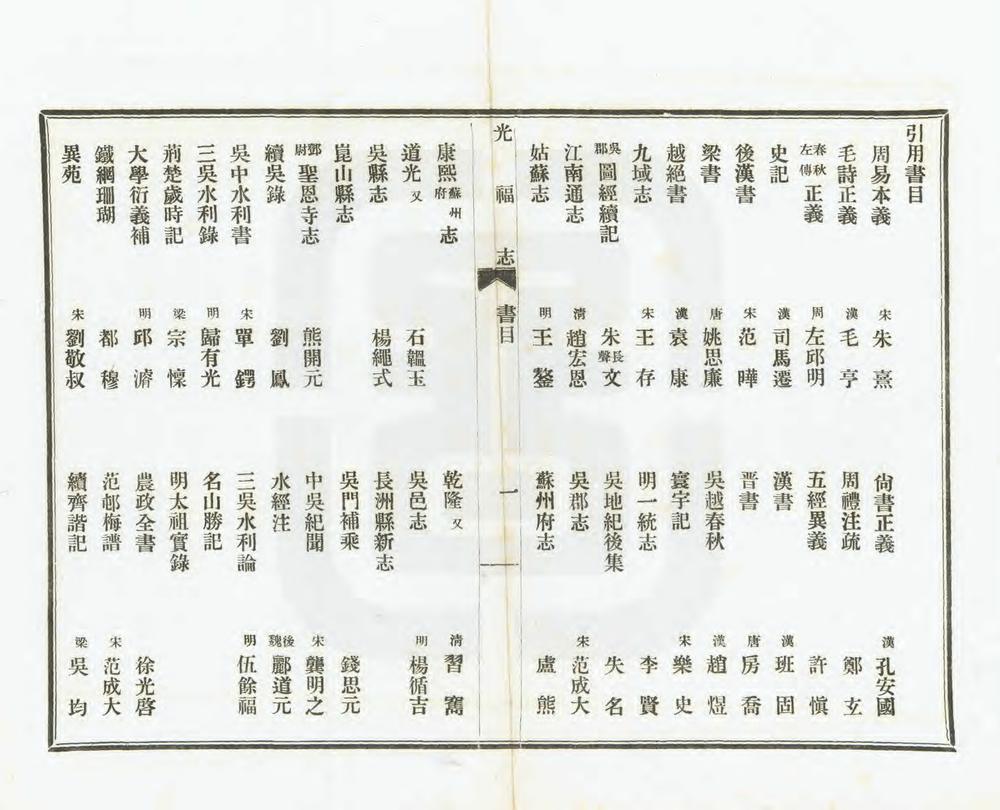 引用書目
周易本義 宋 朱熹 尙書正義 漢 孔安國
毛詩正義 漢 毛亨 周禮注疏 鄭玄
春秋左傳正義 周 左邱明 五經異義 許愼
史記 漢 司馬遷 漢書 漢 班固
後漢書 宋 范曄 晋書 唐 房喬
梁書 唐 姚思廉 吳越春秋 漢 趙煜
越絕書 漢 袁康 寰宇記 宋 樂史
九域志 宋 王存 明一統志 李賢
吳郡圖經續記 朱長文 吳地紀後集 失名
江南通志 清 趙宏恩 吳郡志 宋 范成大
姑蘇志 明 王鏊 蘇州府志 盧熊
光福志 書目 一
康熙蘇州府志 乾隆又 清 習寯
道光又 石韞玉 吳邑志 明 楊循吉
吳縣志 楊繩式 長洲縣新志
崑山縣志 吳門補乘 錢思元
鄧尉聖恩寺志 熊開元 中吳紀聞 宋 龔明之
續吳錄 劉鳳 水經注 後魏 酈道元
吳中水利書 宋 單鍔 三吳水利論 明 伍餘福
三吳水利錄 明 歸有光 名山勝記
荊楚歲時記 梁 宗懍 明太祖實錄
大學衍義補 明 邱濬 農政全書 徐光啓
鐵網珊瑚 都穆 范邨梅譜 宋 范成大
異苑 宋 劉敬叔 續齊諧記 梁 吳均